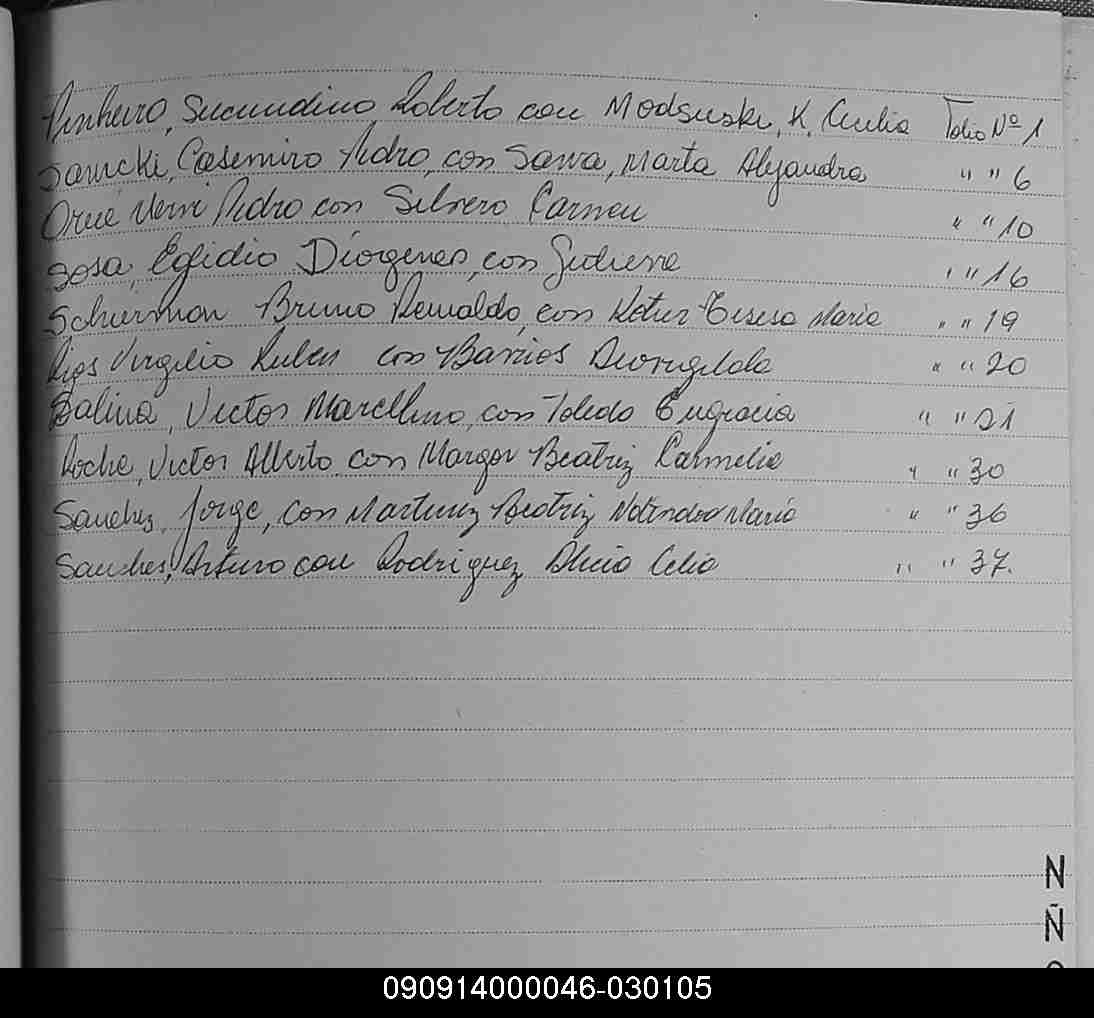 Pinheiro, Secundino Roberto con Modsuski, K. Cecilia Folio Nº 1
Sanicki, Casemiro Pedro, con Sawa, Marta Alejandra " " 6
Orué Pedro con Silvero Carmen " " 10
Sosa, Egidio Diogenes, con " " 16
Schurman Bruno Reinaldo, con Teresa Maria " " 19
Rios Virgilio Ruben con Barrios " " 20
Balina, Victor Marcelino, con Toledo Engracia " " 21
Roche, Victor Alberto con Margor Beatriz Carmelia " " 30
Sanchez, Jorge, con Martinez Beatriz Maria " " 36
Sanches, Arturo con Rodriguez Alicia Celia " " 37.
N
Ñ
090914000046-030105